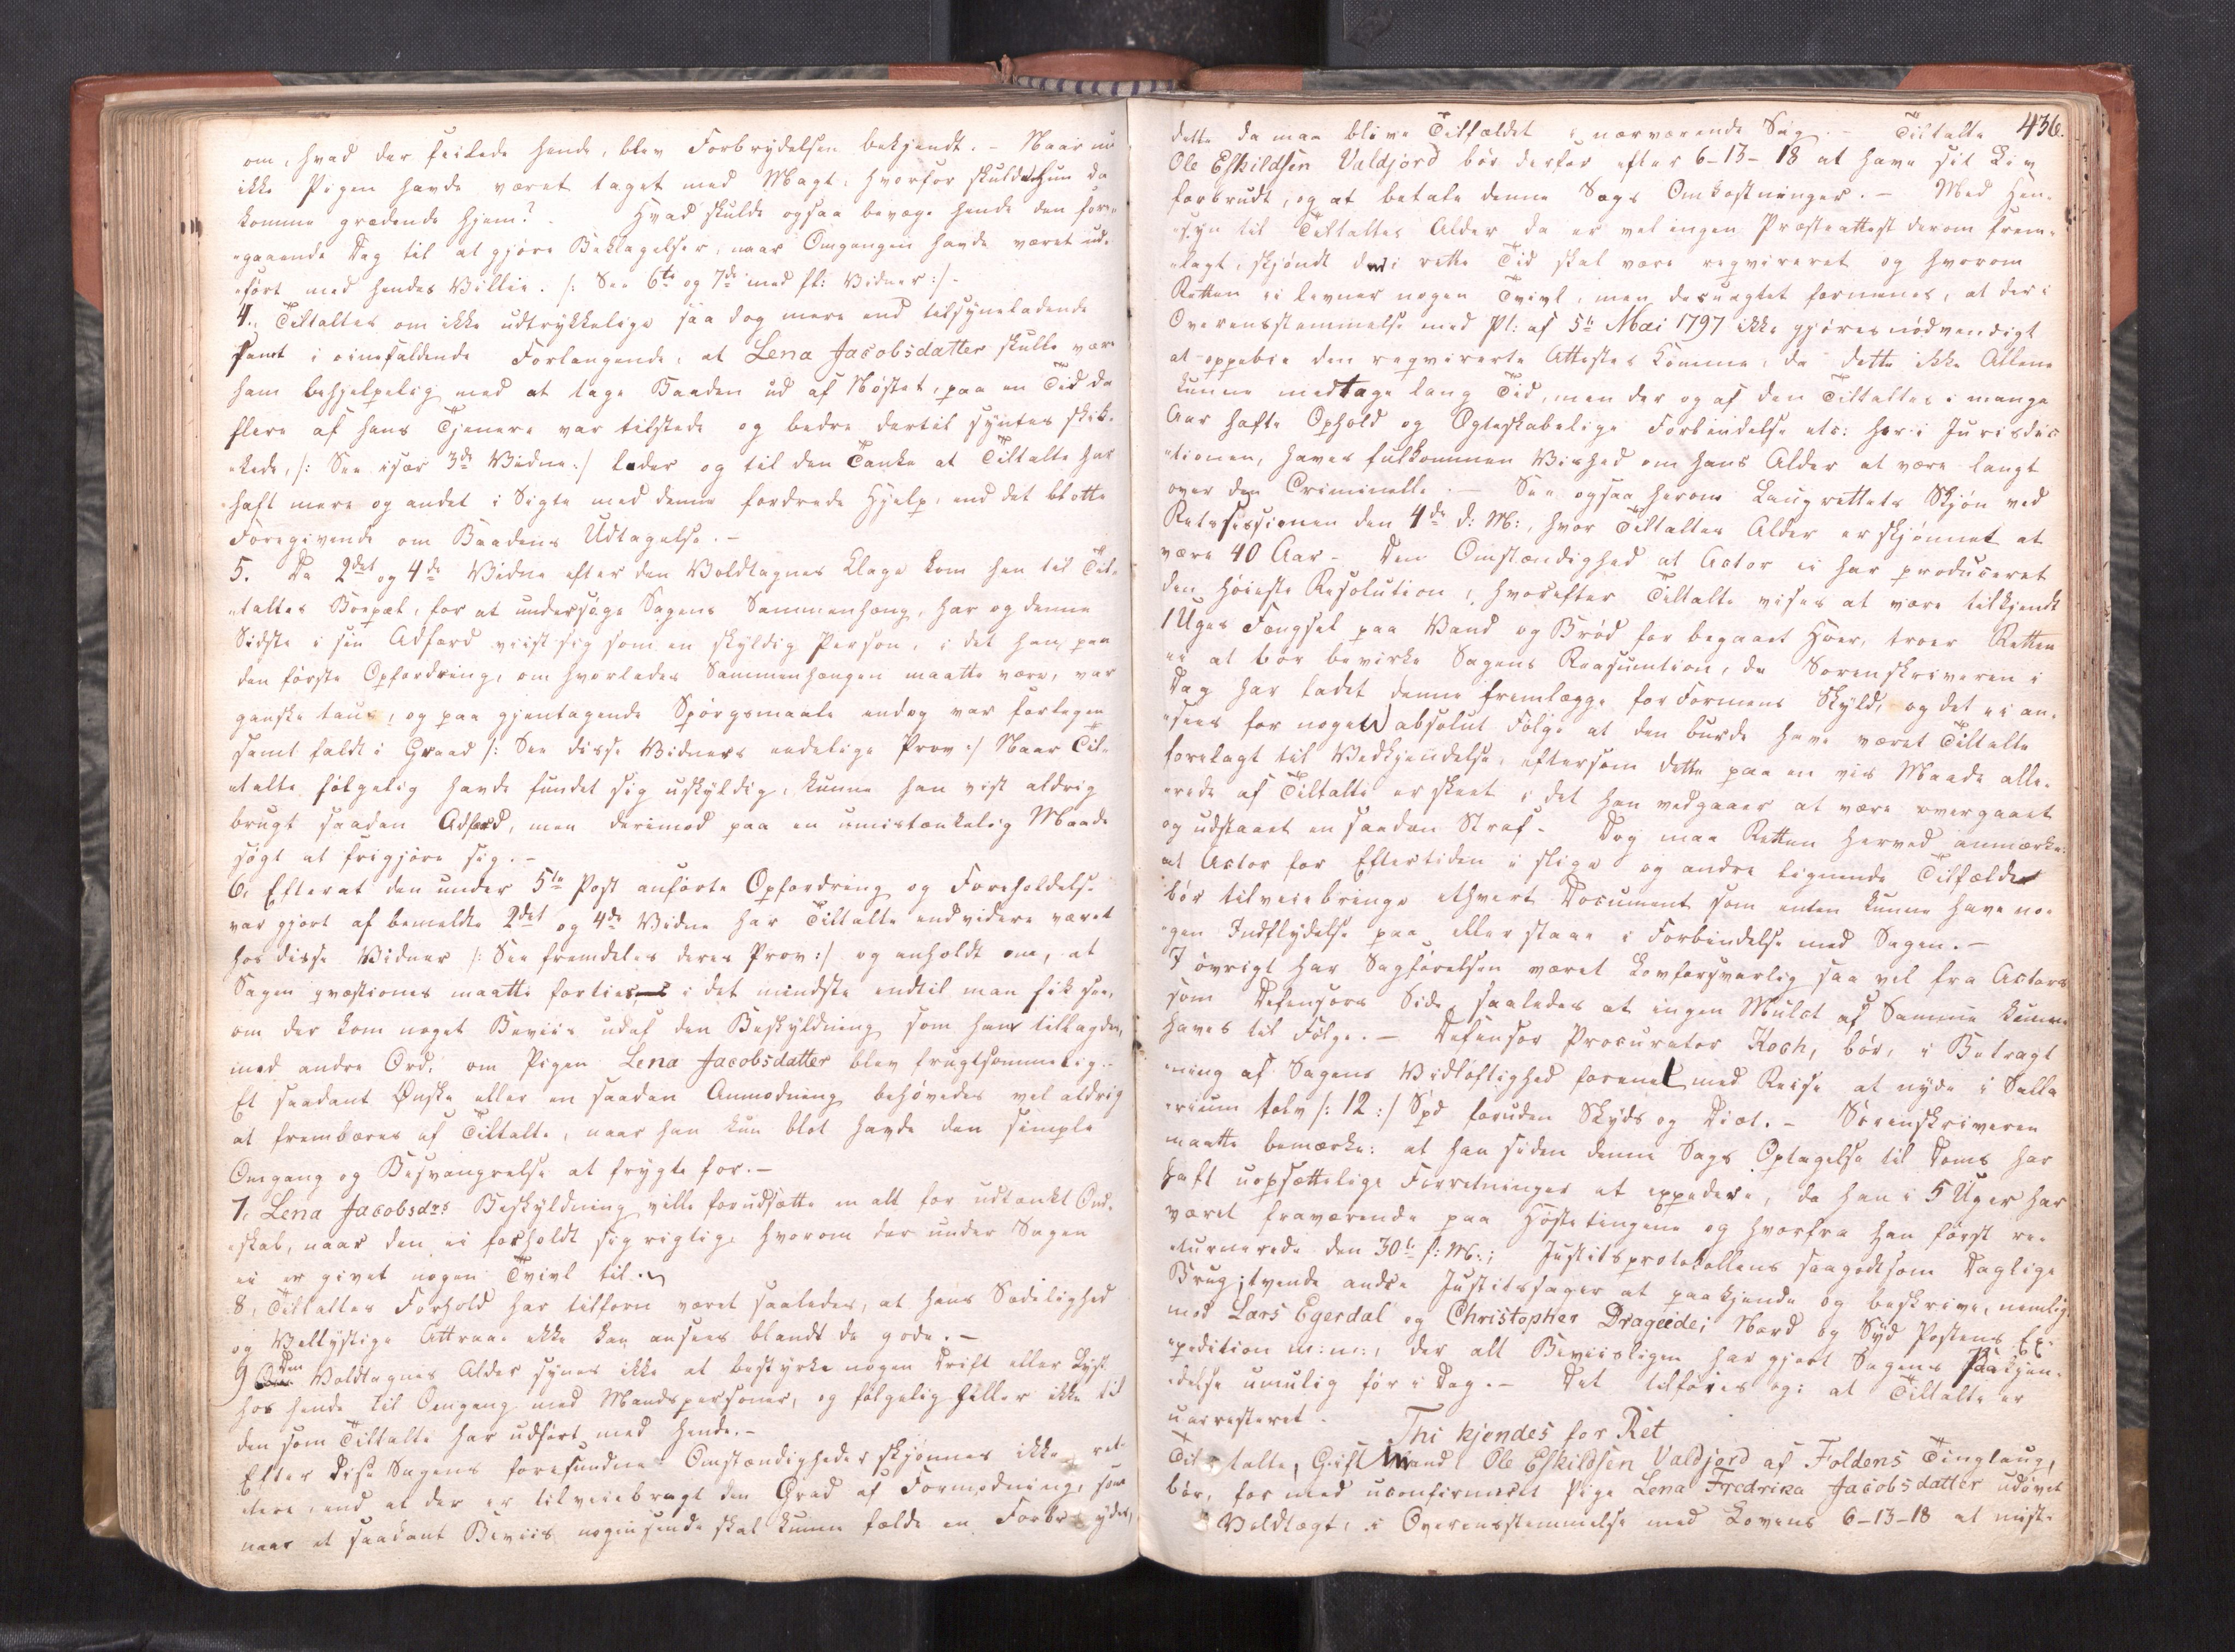 om, hvad der feilede hende, blev Forbrydelsen bekjendt. - Naar nu
ikke Pigen havde været taget med Magt, hvorfor skulde Hun da
komme grædende hjem? Hvad skulde ogsaa bevæge hende den fore-
gaaende Dag til at gjøre Beklagelser, naar Omgangen havde været ud-
ført med hendes Villie. /: See 6te og 7de med fl: Vidner :/ -
4., Tiltaltes om ikke udtrykkelige saa dog mere end tilsyneladende
samt i øinefaldende Forlangende, at Lena Jacobsdatter skulle være
ham behjelpelig med at tage Baaden ud af Nøstet, paa en Tid da
flere af hans Tjenere var tilstede og bedre dertil syntes skik-
kede, /: See især 3de Vidne :/ leder og til den Tanke at Tiltalte har
haft mere og andet i Sigte med denne fordrede Hjelp, end det blotte
Foregivende om Baadens Udtagelse. -
5. Da 2det og 4de Vidne efter den Voldtagnes Klage kom hen til Til-
taltes Boepæl, for at undersøge Sagens Sammenhæng, har og denne
Sidste i sin Adfærd viist sig som en skyldig Person, i det han paa
den første Opfordring, om hvorledes Sammenhængen maatte være, var
ganske taus, og paa gjentagende Spørgsmaale endog var forlegen
samt faldt i Graad /: See disse Vidners eedelige Prov :/ Naar Til-
talte følgelig havde fundet sig uskyldig, kunne han vist aldrig
brugt saadan Adfærd, men derimod paa en umistænkelig Maade
søgt at frigjøre sig. -
6, Efterat den under 5te Post anførte Opfordring og Foreholdelse
var gjort af bemeldte 2det og 4de Vidne har Tiltalte endvidere været
hos disse Vidner /: See fremdeles deres Prov :/ og anholdt om, at
Sagen qvæstiones maatte forties i det mindste indtil man fik see,
om der kom noget Beviis udaf den Beskyldning som ham tillagdes,
med andre Ord, om Pigen Lena Jacobsdatter blev frugtsommelig. -
Et saadant Ønske eller en saadan Anmodning behøvedes vel aldrig
at frembæres af Tiltalte, naar han kun blot havde den simple
Omgang og Besvangrelse at frygte for. -
7, Lena Jacobsdrs Beskyldning ville forudsætte en alt for udtænkt Ond-
skab, naar den ei forholdt sig rigtig, hvorom der under Sagen
ei er givet nogen Tvivl til.
8, Tiltaltes Forhold har tilforn været saaledes, at hans Sædelighed
og Vellystige Attraae ikke kan ansees blandt de gode. -
9 Den Voldtagnes Alder synes ikke at bestyrke nogen Drift eller Lyst
hos hende til Omgang med Mandspersoner, og følgelig heller ikke til
den som Tiltalte har udført med hende. -
Efter disse Sagens forefundne Omstændigheder skjønnes ikke ret-
tere end at der er tilveiebragt den Grad af Formodning, som
naar et saadant Beviis nogensinde skal kunne fælde en Forbryder,
436.
dette da maa blive Tilfældet i nærværende Sag. - Tiltalte
Ole Eskildsen Valdjord bør derfor efter 6-13-18 at have sit Liv
forbrudt, og at betale denne Sags Omkostninger. - Med Hen-
syn til Tiltaltes Alder da er vel ingen Præsteattest derom frem-
lagt, skjøndt den i rette Tid skal være reqvireret og hvorom
Retten ei levner nogen Tvivl, men desuagtet formenes, at der i
Overensstemmelse med Pl: af 5te Mai 1797 ikke gjøres nødvendigt
at oppebie den reqvirerte Attestes Komme, da dette ikke Allene
kunne medtage lang Tid, men der og af den Tiltaltes i mange
Aar hafte Ophold og Ægteskabelige Forbindelse etc: her i Jurisdic-
tionen, haves fuldkommen Vished om hans Alder at være langt
over den Criminelle. - See ogsaa herom Laugrettets Skjøn ved
Retssessionen den 4de d: M:, hvor Tiltaltes Alder er skjønnet at
være 40 Aar - Den Omstændighed at Actor ei har produceret
den høieste Resolution, hvorefter Tiltalte vises at være tilkjendt
1 Uges Fængsel paa Vand og Brød for begaaet Hoer, troer Retten
ei at bør bevirke Sagens Reasumtion, da Sorenskriveren i
Dag har ladet denne fremlægge for Formens Skyld, og det ei an-
sees for nogen absolut Følge at den burde have været Tiltalte
forelagt til Vedkjendelse, eftersom dette paa en vis Maade alle-
rede af Tiltalte er skeet i det han vedgaaer at være overgaaet
og udstaaet en saadan Straf - Dog maa Retten herved anmærke:
at Actor for Eftertiden i slige og andre lignende Tilfælde
bør tilveiebringe ethvert Document som enten kunne have no-
gen Indflydelse paa eller staae i Forbindelse med Sagen. -
I øvrigt har Sagførelsen været Lovforsvarlig saa vel fra Actors
som Defensors Side, saaledes at ingen Mulct af Samme kunne
haves til Følge. - Defensor Procurator Koch, bør, i Betragt
ning af Sagens Vidtløftighed forenet med Reise at nyde i Salla
rium tolv /: 12 :/ Spd foruden Skyds og Diæt. - Sorenskriveren
maatte bemærke: at han siden denne Sags Optagelse til Doms har
haft uopsættelige Forretninger at expedere, da han i 5 Uger har
været fraværende paa Høstetingene og hvorfra han først re-
tournerede den 30te f: M:; Justitsprotokollens saagodtsom Daglige
Brug; tvende andre Justitssager at paakjende og beskrive, nemlig
mod Lars Egerdal og Christopher Drageide; Nord og Syd Postens Ex-
pedition m: m:, der alt Beviisligen har gjort Sagens Paakjen-
delse umulig før i Dag. - Det tilføies og: at Tiltalte er
uarresteret.
Thi kjendes for Ret
Tiltalte, Gift Mand Ole Eskildsen Valdjord af Foldens Tinglaug,
bør, for med uconfirmeret Pige Lena Fredrika Jacobsdatter udøvet
Voldtægt, i Overensstemmelse med Lovens 6-13-18 at miste